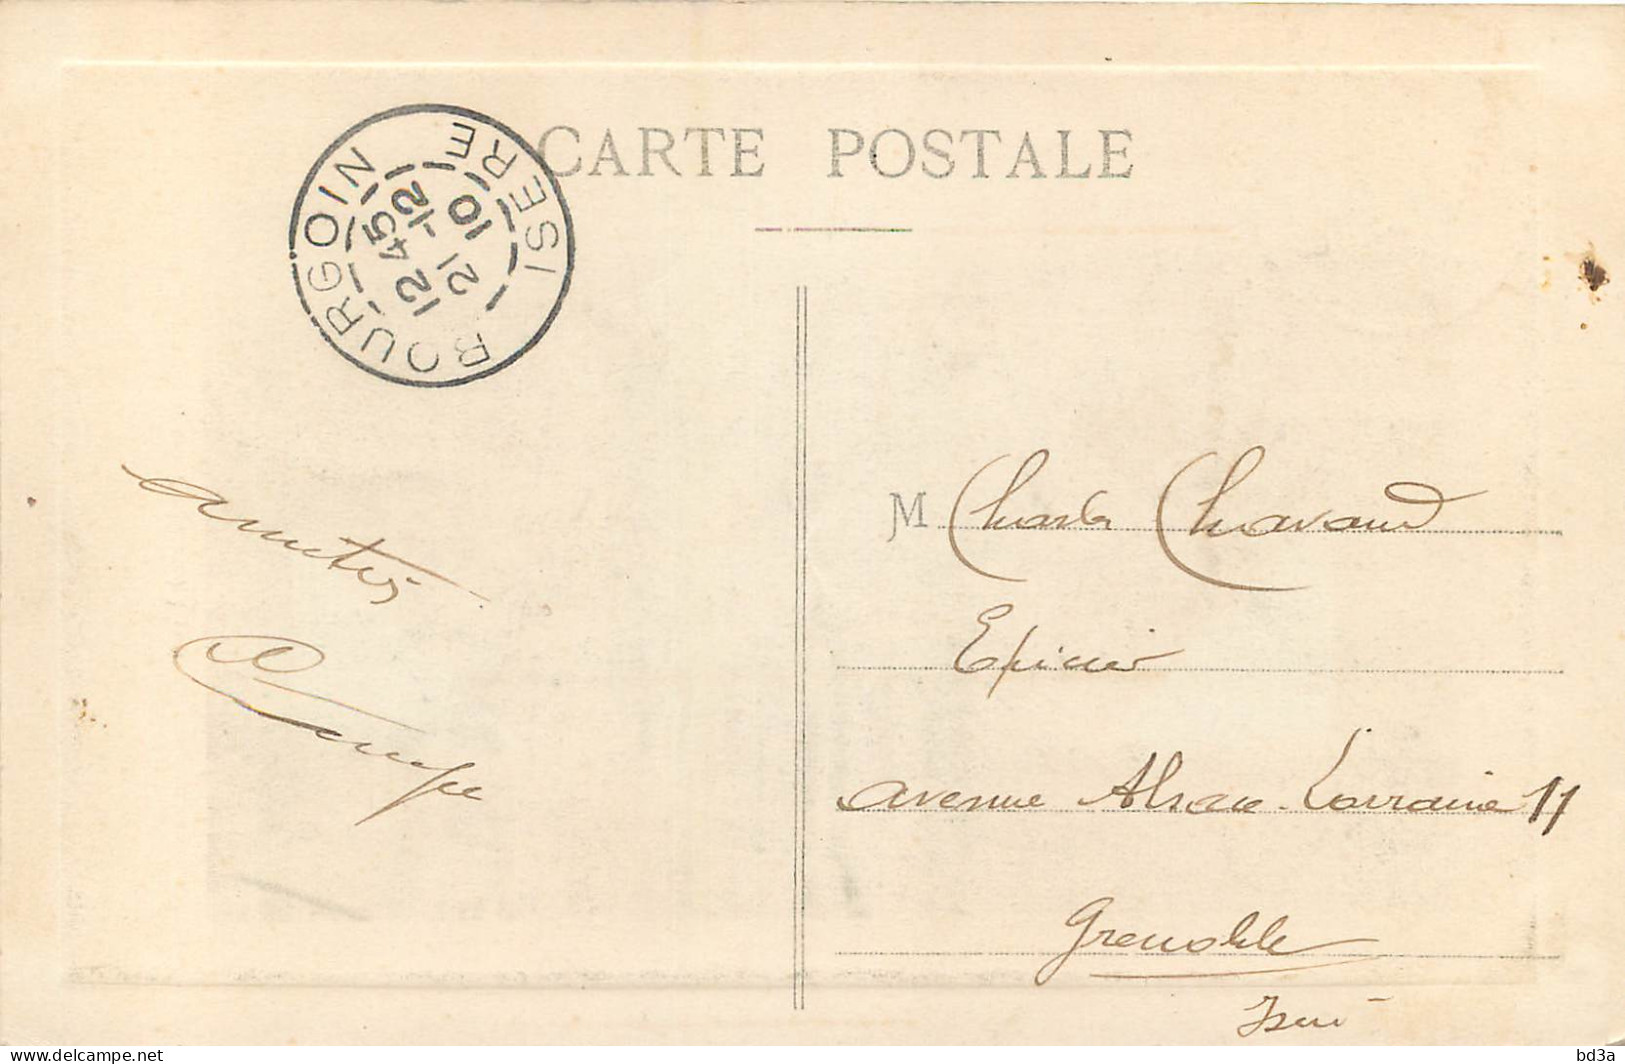 CARTE POSTALE
BOURGOIN
ISERE
12 45
21 -12
10
M Charles Chavand
Epicier
avenue Alsace-Lorraine 11
Grenoble
Isère
amitiés
delcampe.net
bd3a